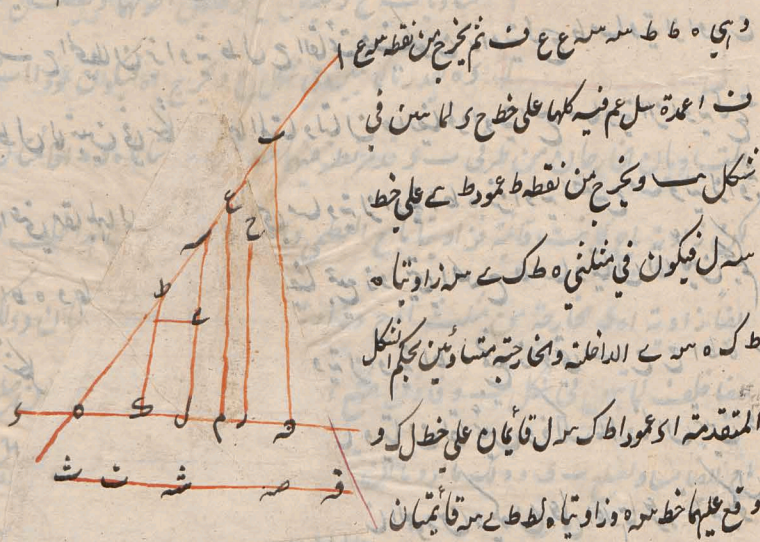 وهي ه ط ط س س ع ع ف ثم يخرج من نقطه س ع
ف اعمدة س ل ع م ف كلها على خط ح ر لما تبين في
شكل ب ويخرج من نقطه ط عمود ط ے علي خط
س ل فيكون في مثلثي ه ط ك ے س زاويتا ه
ط ك ه س ے الداخلته والخارجته متساوئين بحكم الشكل
المتقدمته اذ عمودا ط ك س ل قائمان علي خط ل ك و
وقع عليهما خط س ه وزاويتا ه ط ط ے س قائمتان
ف
ع
ح
س
ط
ے
ه ك ل م ر
ث ت ش ص ق